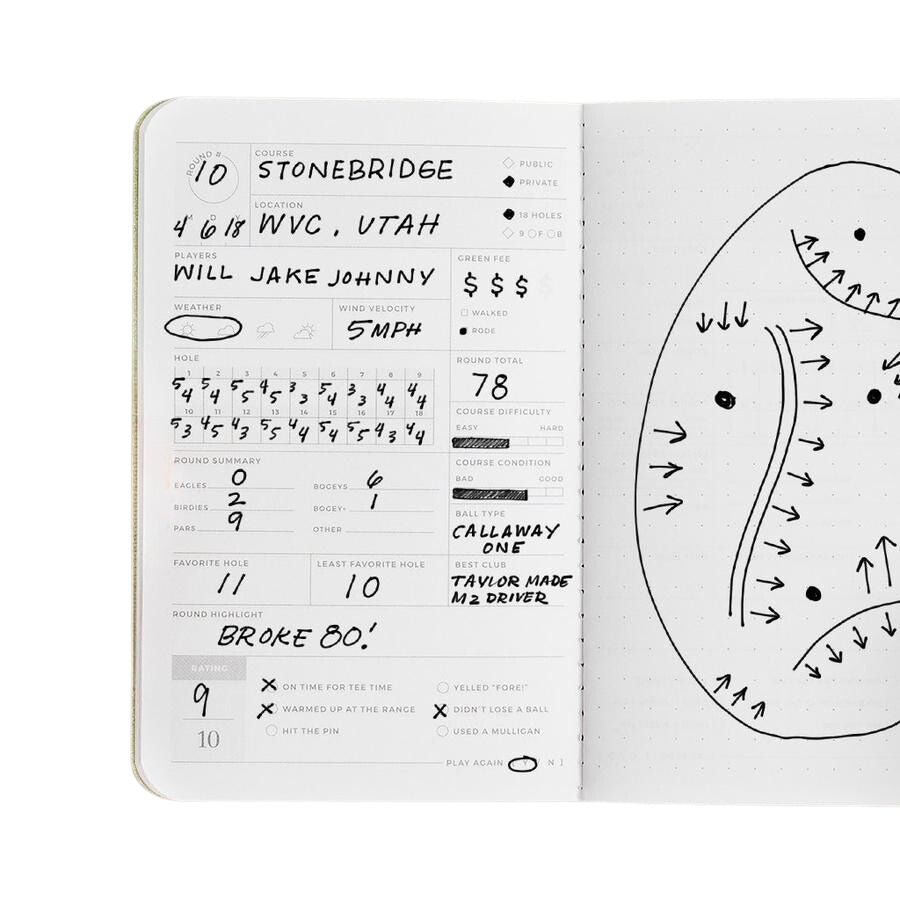 ROUND # COURSE
10 STONEBRIDGE PUBLIC
PRIVATE
M D Y LOCATION 18 HOLES
4 6 18 WVC, UTAH 9 F B
PLAYERS GREEN FEE
WILL JAKE JOHNNY $ $ $ $
WEATHER WIND VELOCITY WALKED
5MPH RODE
HOLE ROUND TOTAL
1 2 3 4 5 6 7 8 9 78
5 4 5 4 5 5 4 5 3 3 5 4 3 3 4 4 4 4
10 11 12 13 14 15 16 17 18 COURSE DIFFICULTY
5 3 4 5 4 3 5 5 4 4 5 4 5 5 4 3 4 4 EASY HARD
ROUND SUMMARY COURSE CONDITION
EAGLES 0 BOGEYS 6 BAD GOOD
BIRDIES 2 BOGEY+ 1 BALL TYPE
PARS 9 OTHER CALLAWAY
ONE
FAVORITE HOLE LEAST FAVORITE HOLE BEST CLUB
11 10 TAYLOR MADE
M2 DRIVER
ROUND HIGHLIGHT
BROKE 80!
RATING
9 ON TIME FOR TEE TIME YELLED "FORE!"
WARMED UP AT THE RANGE DIDN'T LOSE A BALL
10 HIT THE PIN USED A MULLIGAN
PLAY AGAIN [ Y / N ]